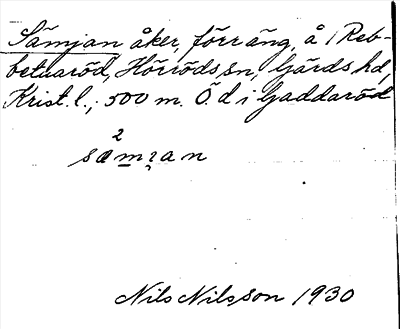 Sämjan åker, förr äng, å 1 Reb-
betuaröd, Hörröds sn, Gärds hd,
Krist. l., 500 m. Ö. d i Gaddaröd
2
samɿan
Nils Nilsson 1930